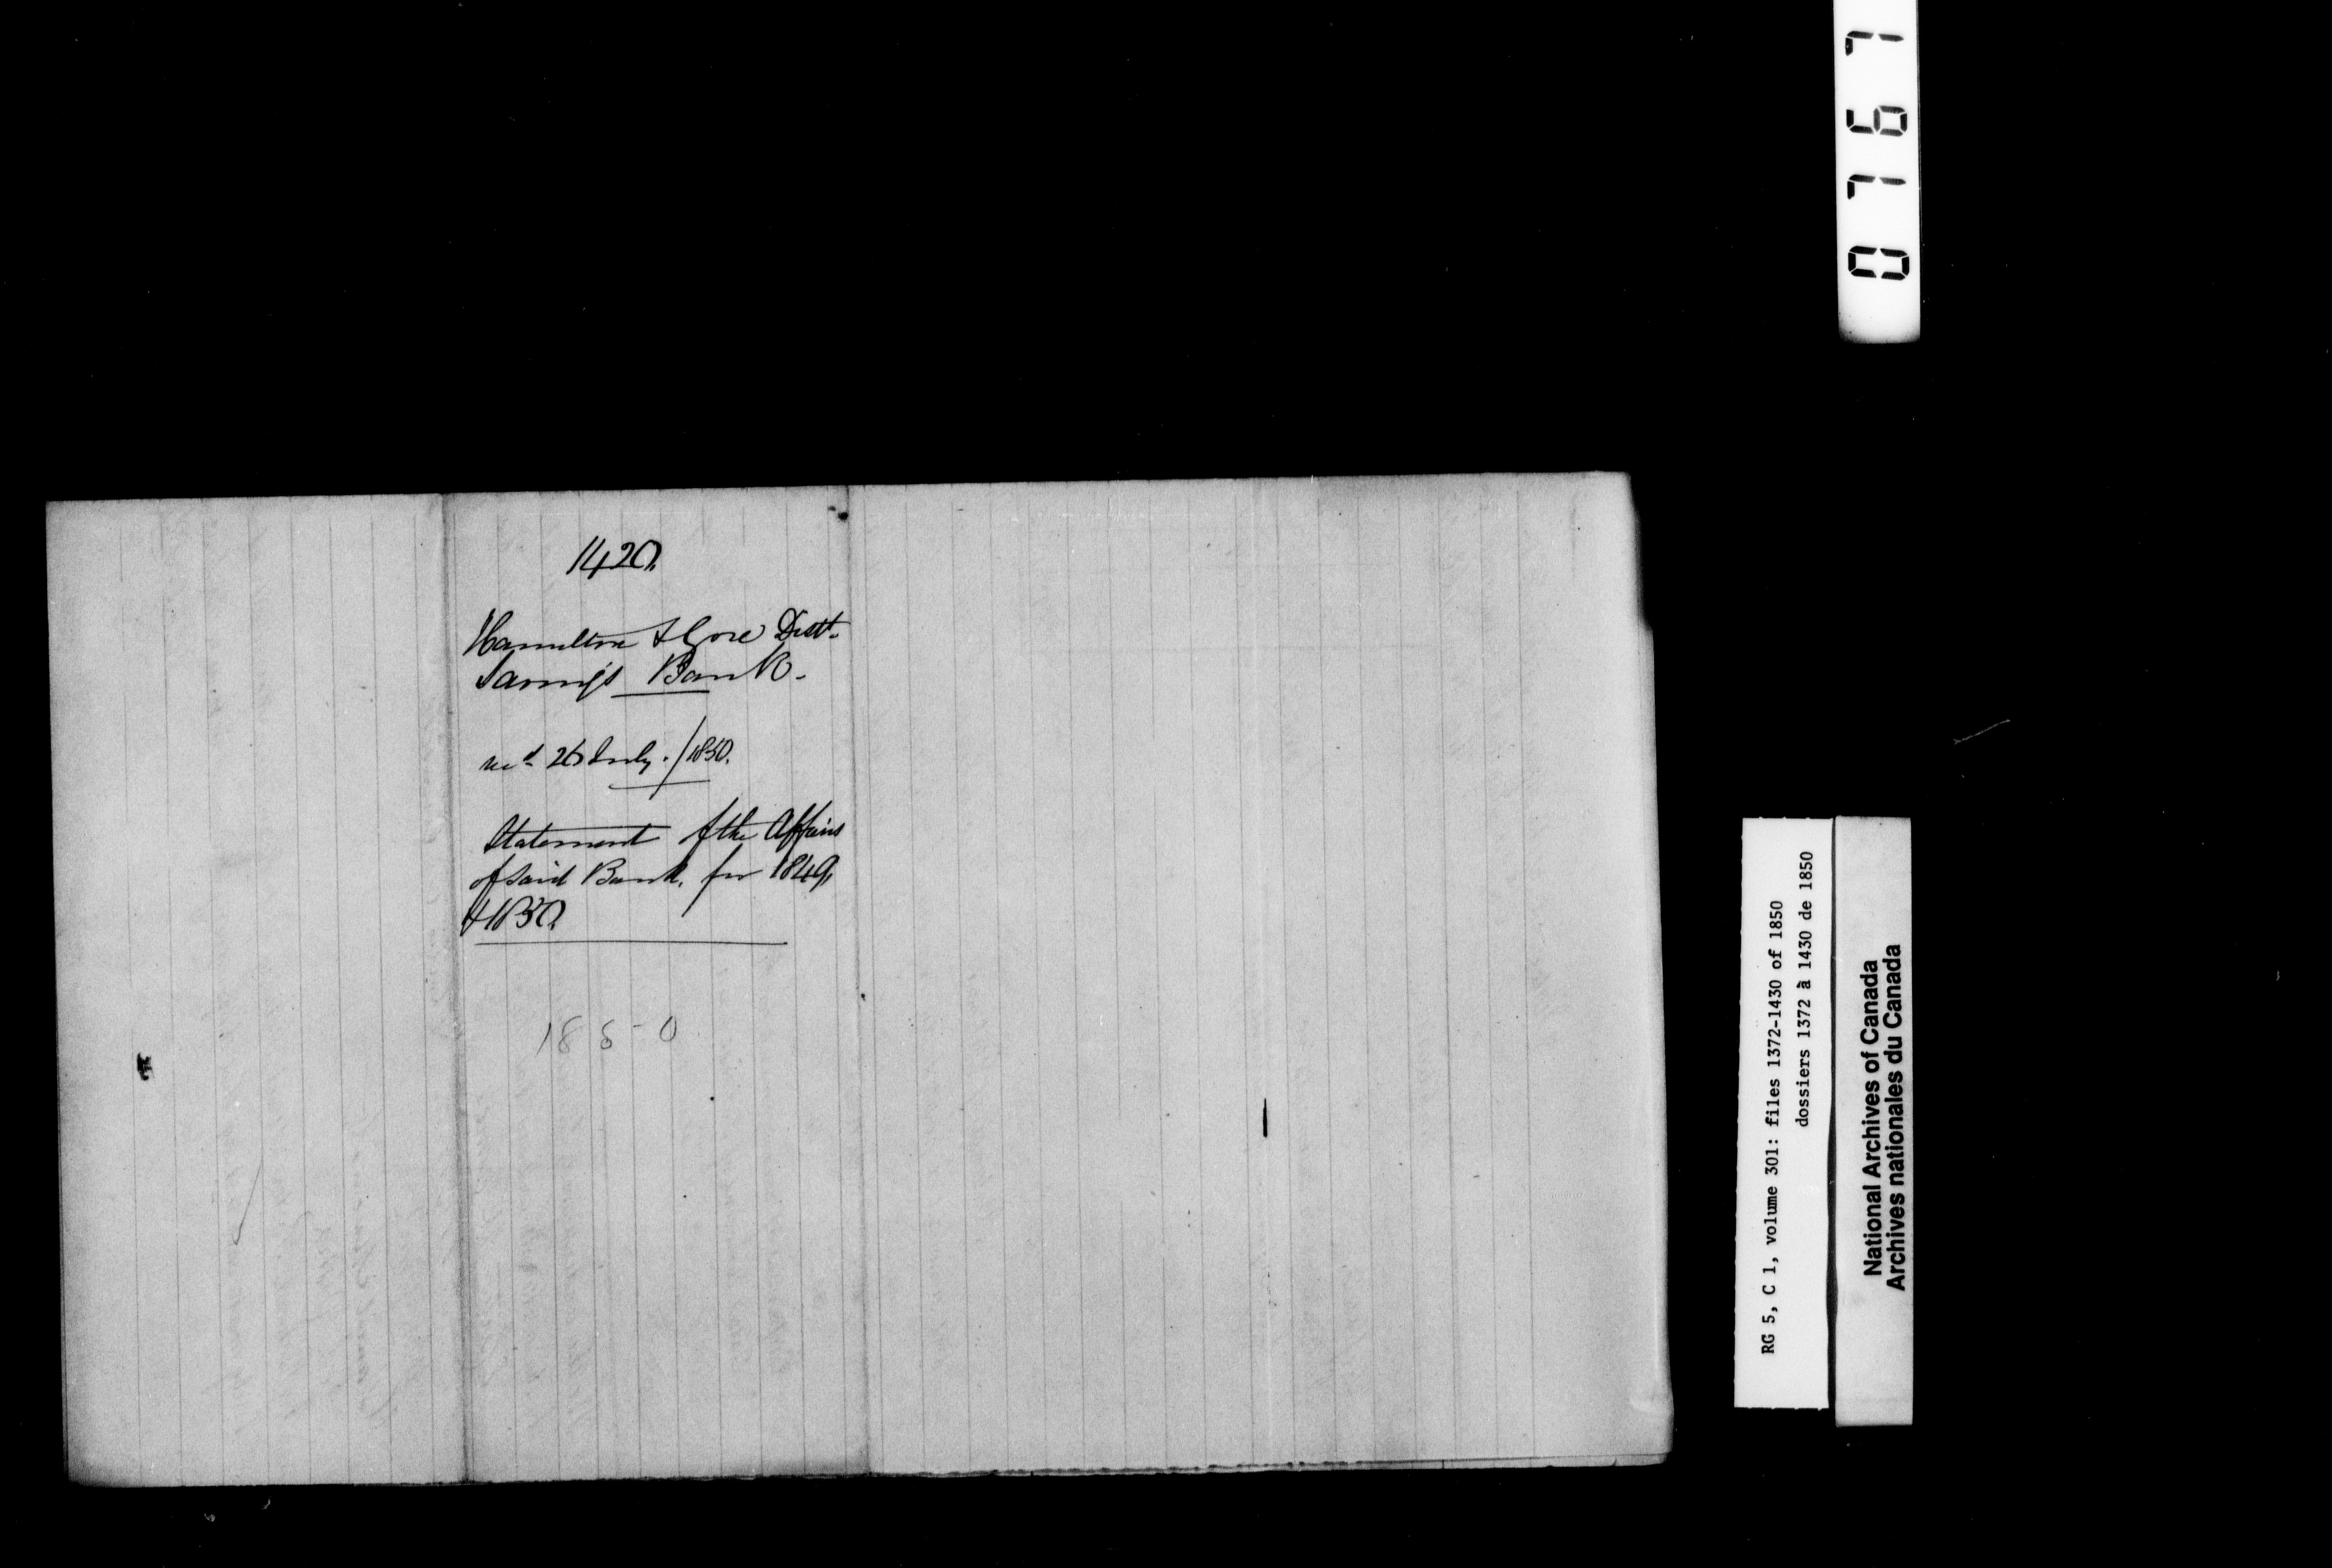 1420.
Hamilton & Gore Distt.
Savings Bank.
recd 26 July. / 1850.
Statement of the Affairs
of said Bank. for 1849,
& 1850.
1850
0767
RG 5, C 1, volume 301: files 1372-1430 of 1850
dossiers 1372 à 1430 de 1850
National Archives of Canada
Archives nationales du Canada